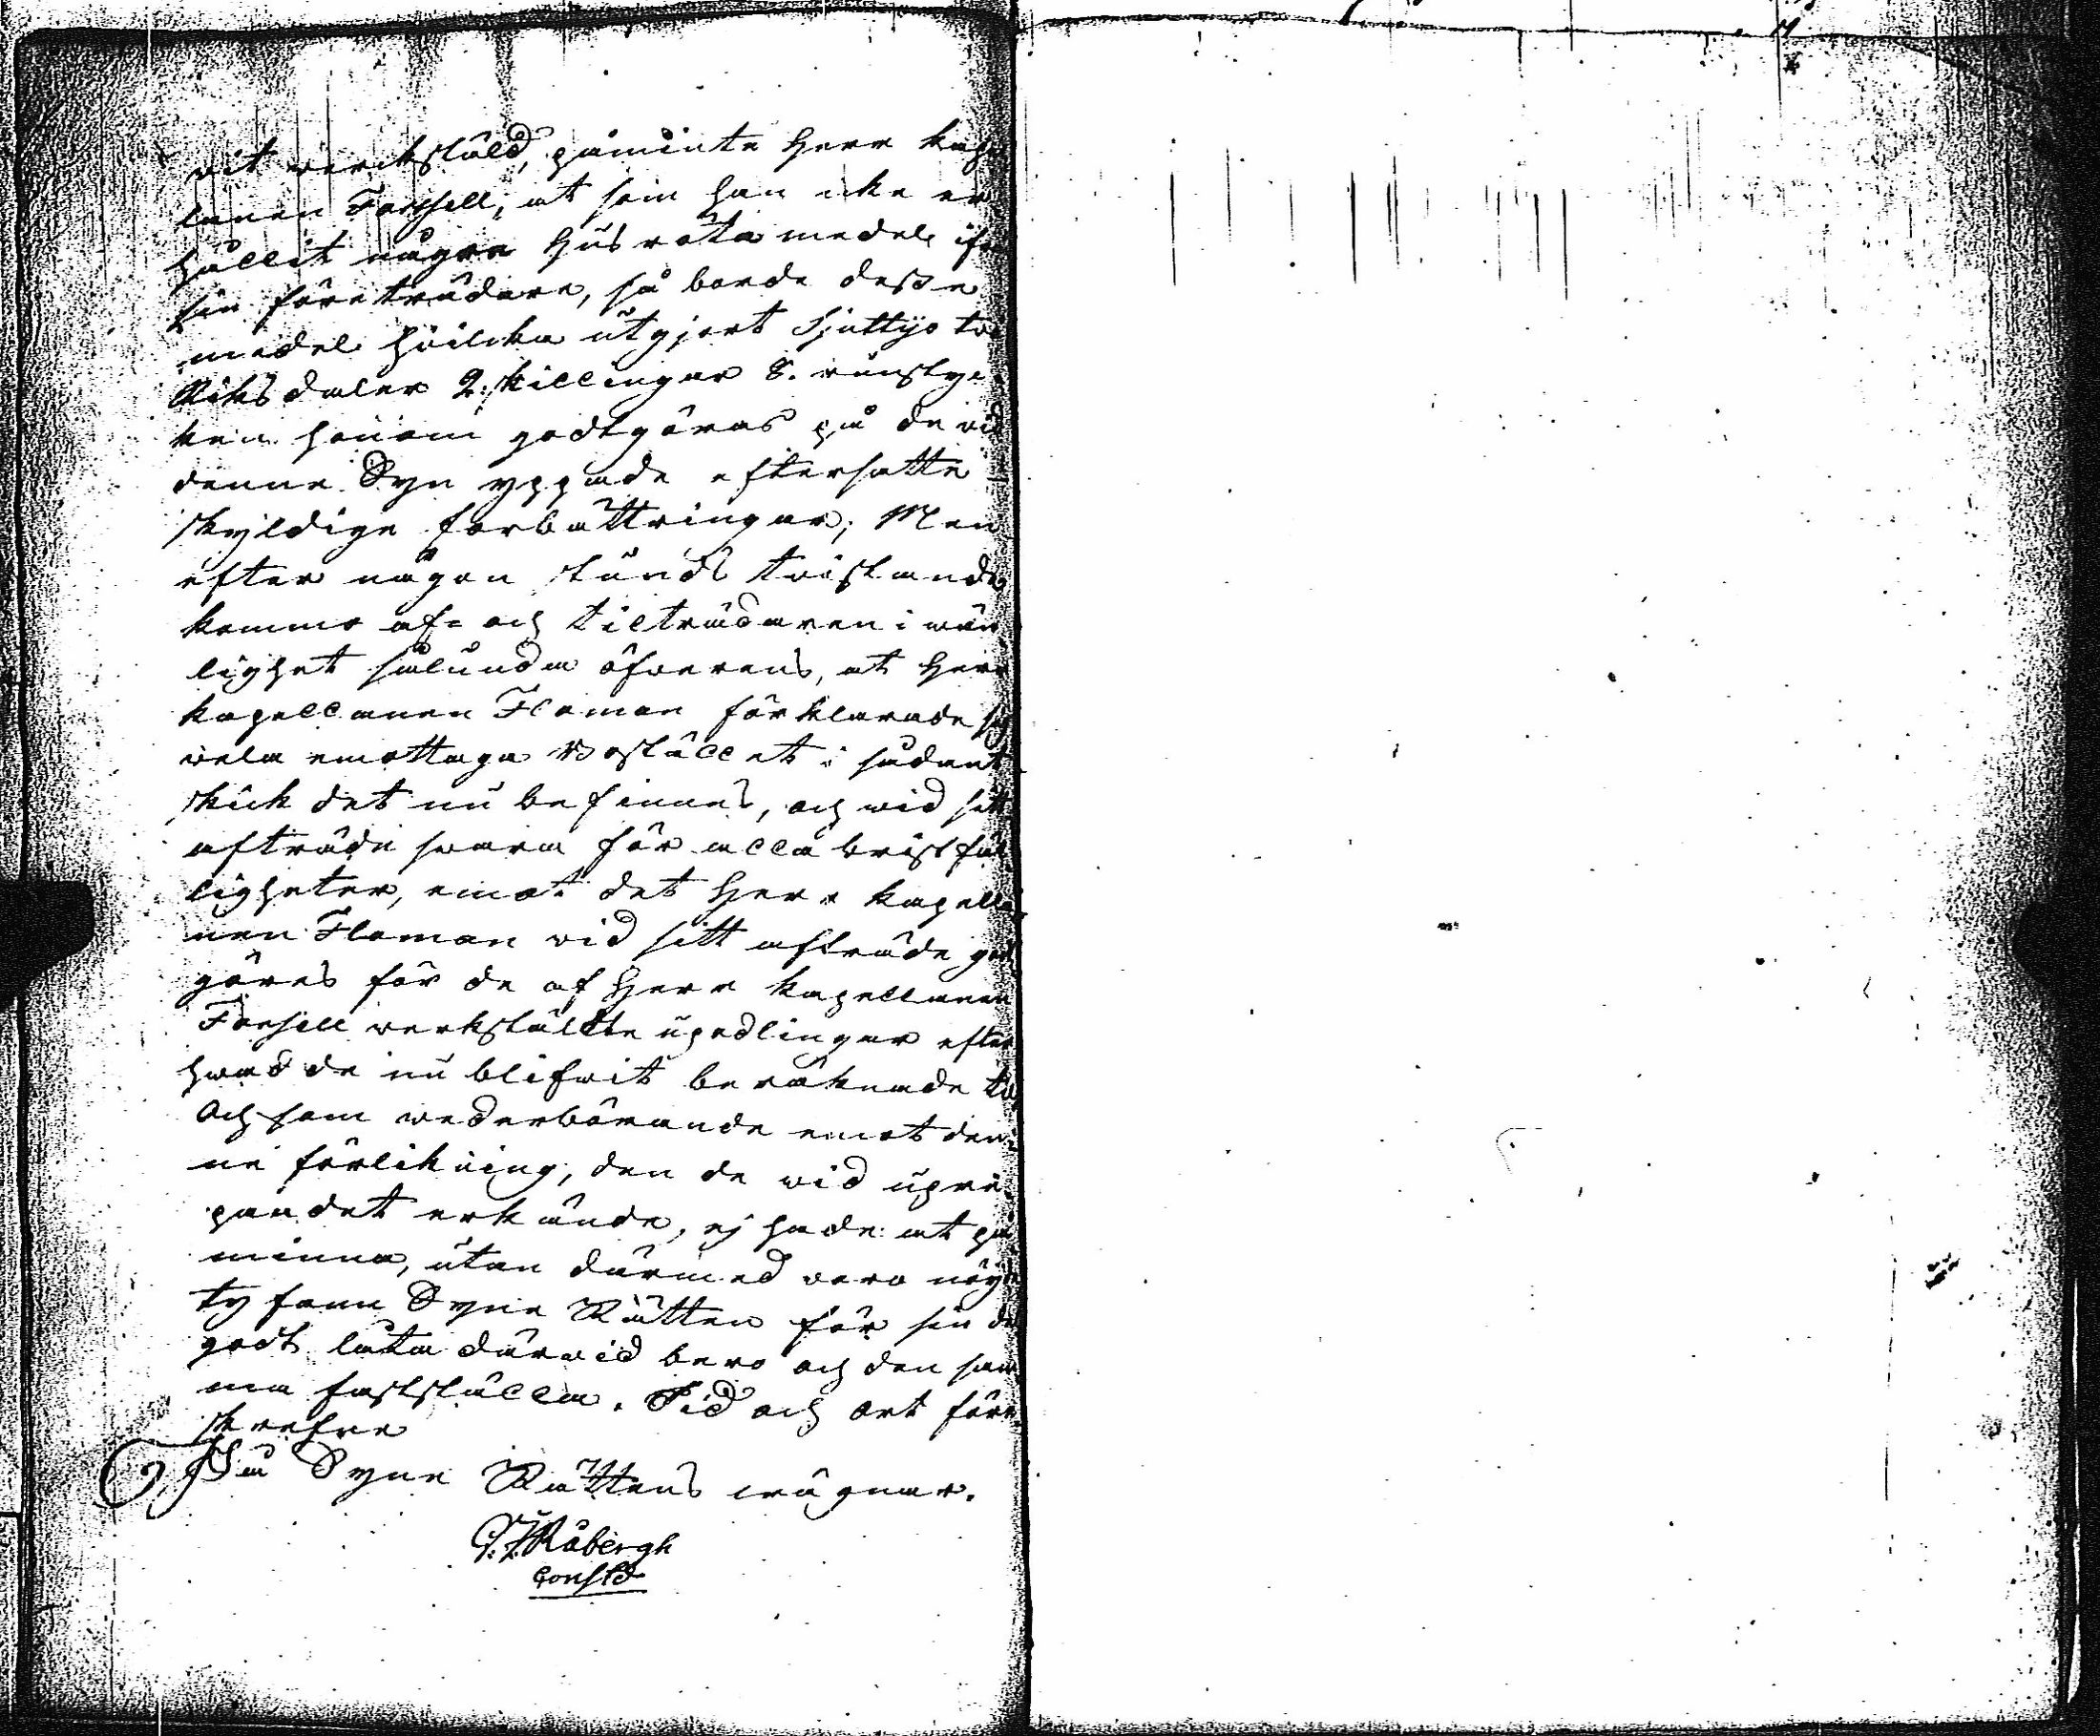 wit werckstäld, påminte Herr kap
lanen Forssell, at som han icke er
hållit några Husröta medel ifr
sin företrädare, så borde desze
medel hvilcka utgjort Sjuttijo två
Riksdaler 2. skillingar 8. runsty-
ken honom godtgöras på de vid
denne Syn yppade eftersatte
skyldige förbättringar; Men
efter någon stunds tvistande
kommo af- och tilträdaren i vän
lighet sålunda öfwerens, at Herr
kapellanen Floman förklarade sig
vela emottaga Bostället i sådant
skick det nu befinnes, och wid sitt
afträde swara för alla bristfäl
ligheter, emot det Herr kapella
nen Floman vid sitt afträde godt
göres för de af Herr kapellanen
Forsell werkstälte upodlingar efter
hwad de nu blifwit beräknade til
Och som wederbörande emot den-
ne förlikning, den de vid uprö-
pandet erkände, ej hade at på
minna, utan därmed voro nöjde
ty fann Syne Rätten för sin del
godt låta därvid bero och den sam
ma fastställa. Tid och ort före
skrefne
På Syne Rättens wägnar.
C. J. Råbergh